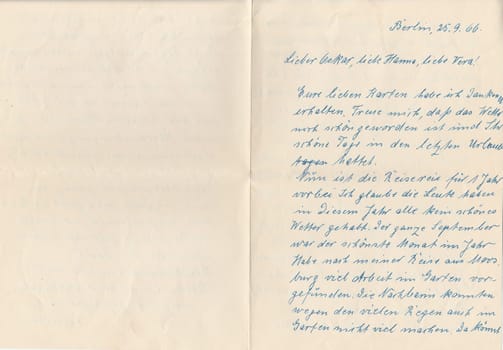 Berlin, 25.9.66.
Lieber Oskar, liebe Hanna, liebe Vera!
Eure lieben Karten habe ich dankend
erhalten. Freue mich, daß das Wetter
noch schön geworden ist und Ihr
schöne Tage in den letzten Urlaubs
hattet.
Nun ist die Reiserei für 1 Jahr
vorbei Ich glaube die Leute haben
in diesem Jahr alle kein schönes
Wetter gehabt. Der ganze September
war der schönste Monat im Jahr
Habe nach meiner Reise aus Moos-
burg viel Arbeit im Garten vor-
gefunden. Die Nachbarin konnten
wegen den vielen Regen auch im
Garten nicht viel machen. Da könnt